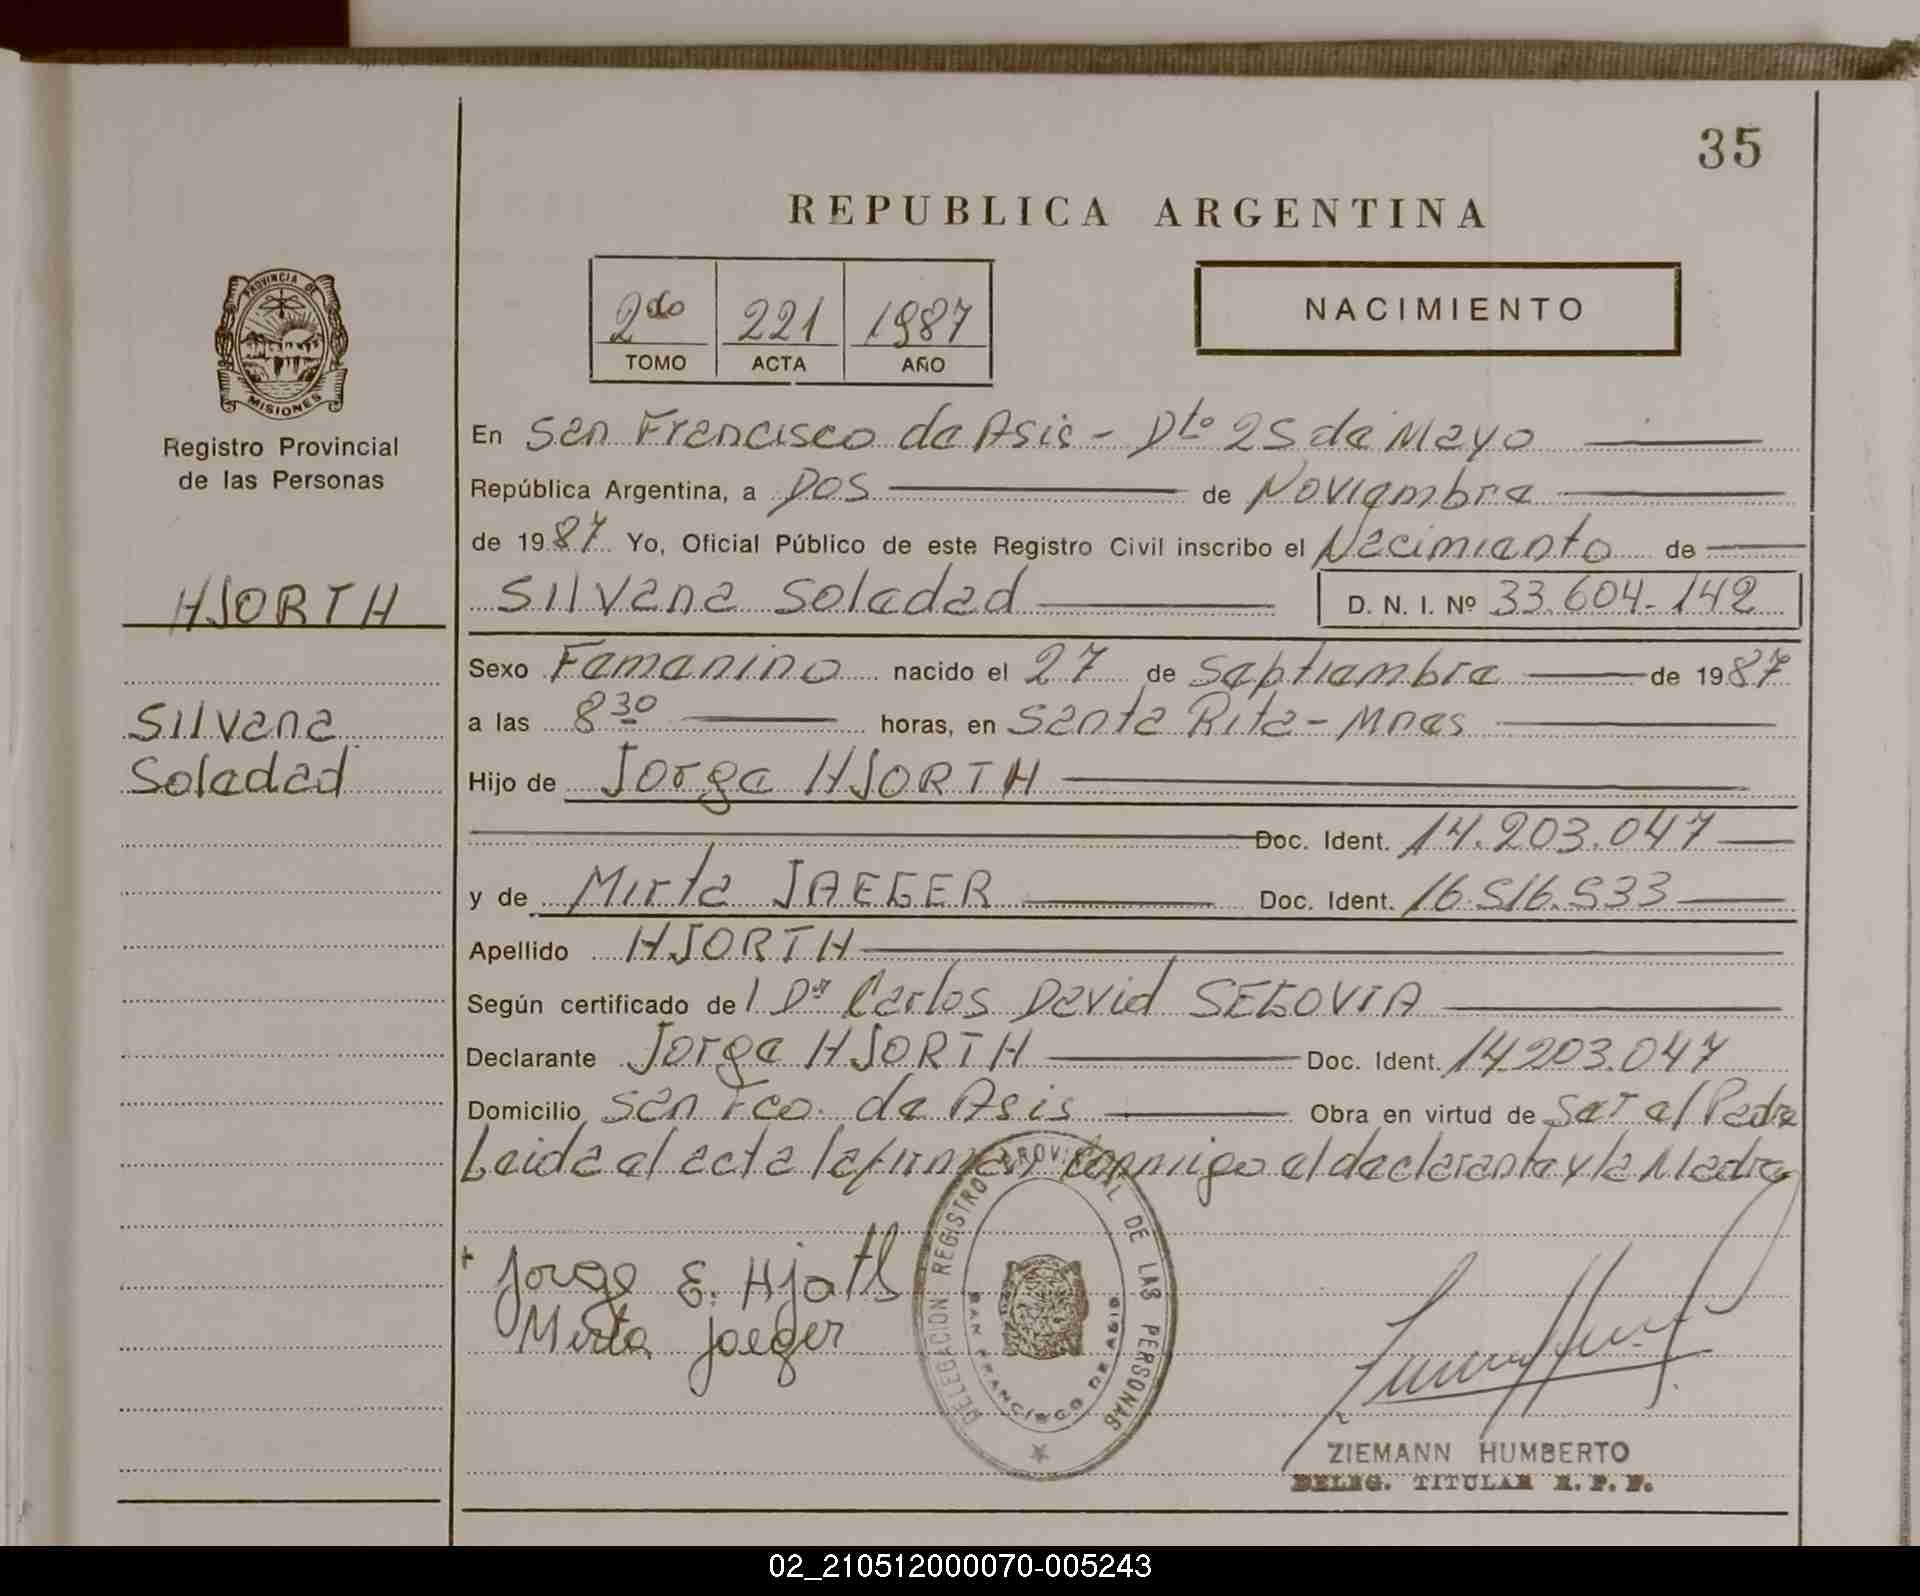 35
REPUBLICA ARGENTINA
PROVINCIA DE
MISIONES
Registro Provincial
de las Personas
HJORTH
Silvana
Soledad
2do 221 1987
TOMO ACTA AÑO
NACIMIENTO
En San Francisco de Asis - Dto 25 de Mayo
República Argentina, a Dos de Noviembre
de 1987 Yo, Oficial Público de este Registro Civil inscribo el Nacimiento de
Silvana Soledad D. N. I. Nº 33.604.142
Sexo Femenino nacido el 27 de Septiembre de 1987
a las 8 30 horas, en Santa Rita - Mnes
Hijo de Jorge HJORTH
Doc. Ident. 14.203.047
y de Mirta JAEGER Doc. Ident. 16.516.533
Apellido HJORTH
Según certificado del Dr Carlos David SEGOVIA
Declarante Jorge HJORTH Doc. Ident. 14203.047
Domicilio San Fco. de Asis Obra en virtud de Ser el Padre
Leida el acta la firman conmigo el declarante y la Madre
Jorge E. Hjoth
Mirta Jaeger
DELEGACION REGISTRO PROVINCIAL DE LAS PERSONAS
SAN FRANCISCO DE ASIS
ZIEMANN HUMBERTO
DELEG. TITULAR R. P. P.
02_210512000070-005243